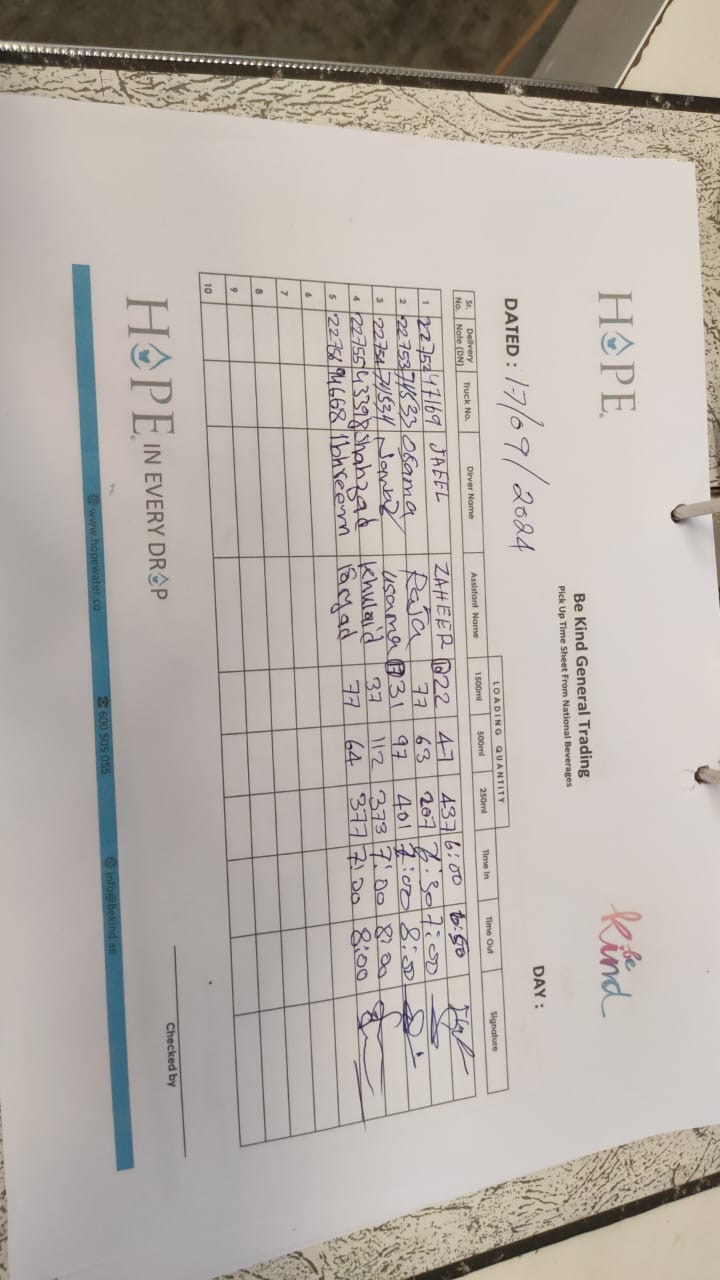 HOPE
be kind
Be Kind General Trading
Pick Up Time Sheet From National Beverages
DATED : 17/09/2024 DAY :
LOADING QUANTITY
Sr. No. Delivery Note (DN) Truck No. Dirver Name Assistant Name 1500ml 500ml 250ml Time In Time Out Signature
1 22752 47169 JAEEL ZAHEER 22 47 437 6:00 6:50
2 22753 74533 Osama Raja 77 63 207 6:30 7:00
3 22754 74534 usama 31 97 401 7:00 8:00
4 22755 43398 Shahzad Khulaid 37 112 373 7:00 8:00
5 22756 94668 Ibhreem 77 64 377 7:00 8:00
6
7
8
9
10
Checked by
HOPE IN EVERY DROP
www.hopewater.co 600 505 055 info@bekind.ae